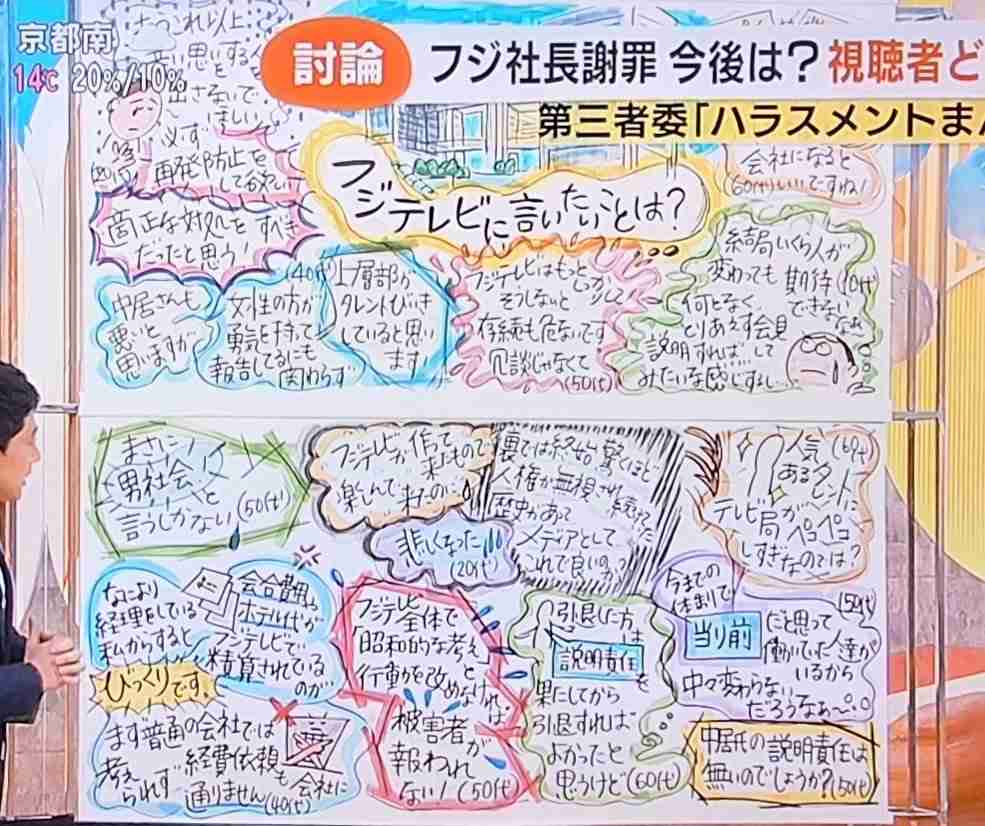 京都南
14℃ 20%/10%
討論
フジ社長謝罪 今後は？視聴者ど
第三者委「ハラスメントまん
これ以上
思いをする人
出さないで
ほしい
必ず
再発防止を
して欲しい
適正な対処をすべき
だったと思う!
フジテレビに言いたいことは?
会社になると
(60代)いいですね!
中居さんも
悪いと
思いますが…
(40代)
女性の方が
勇気を持って
報告してるにも
関わらず
上層部が
タレントびいき
していると思い
ます
フジテレビはもっと
しっかり
そうしないと
存続も危ないです
冗談じゃなくて
(50代)
結局いくら人が
変わっても期待
できないなぁ
何となく
とりあえず会見
説明すれば…して
みたいな感じするし…
まさに
男社会!と
言うしかない(50代)
フジテレビが作って
来たもので
楽しんで
来たのに
悲しくなった
(20代)
裏では終始驚くほど
人権が無視され
続けて
歴史があって
メディアとして
これで良いのか?
人気(60代)
ある
タレントに
テレビ局が
ペコペコ
しすぎなのでは?
なにより
経理をしている
私からすると
びっくりです。
会合費用
ホテル代が
フジテレビで
精算されている
のが
まず普通の会社では
考えられず
経費依頼も会社に
通りません(40代)
フジテレビ全体で
「昭和的な考え」
行動を改めなければ
被害者が
報われ
ない!(50代)
引退した方は
説明責任を
果たしてから
引退すれば
よかったと
思うけど(60代)
今までの
体制で
当り前
だと思って
働いていた人達が
いるから
中々変わらない
だろうなぁ〜
(50代)
中居氏の説明責任は
無いのでしょうか?(50代)